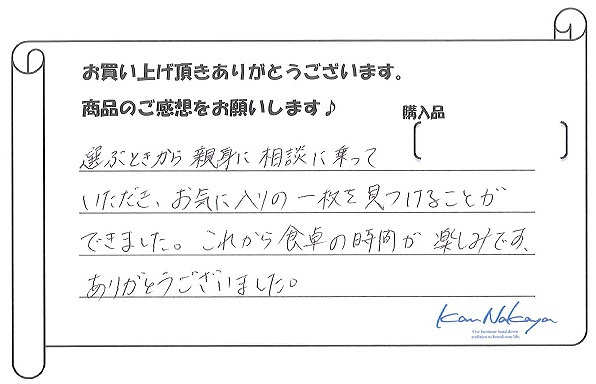 お買い上げ頂きありがとうございます。
商品のご感想をお願いします♪
購入品
選ぶときから親身に相談に乗って
いただき、お気に入りの一枚を見つけることが
できました。これから食卓の時間が楽しみです。
ありがとうございました。
Kan Nakaya